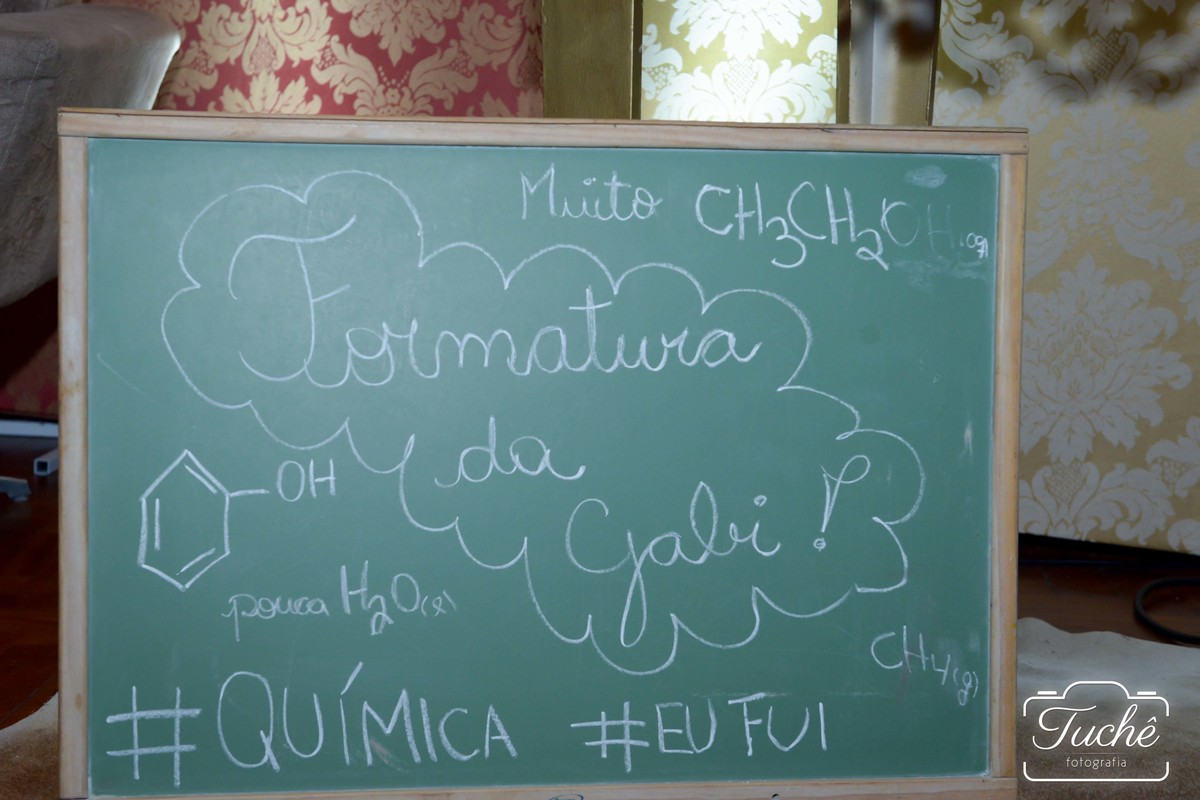 Muito CH3CH2OH(aq)
Formatura
da
Gabi!
OH
pouca H2O(l)
CH4(g)
#QUÍMICA #EU FUI
Tuchê
fotografia